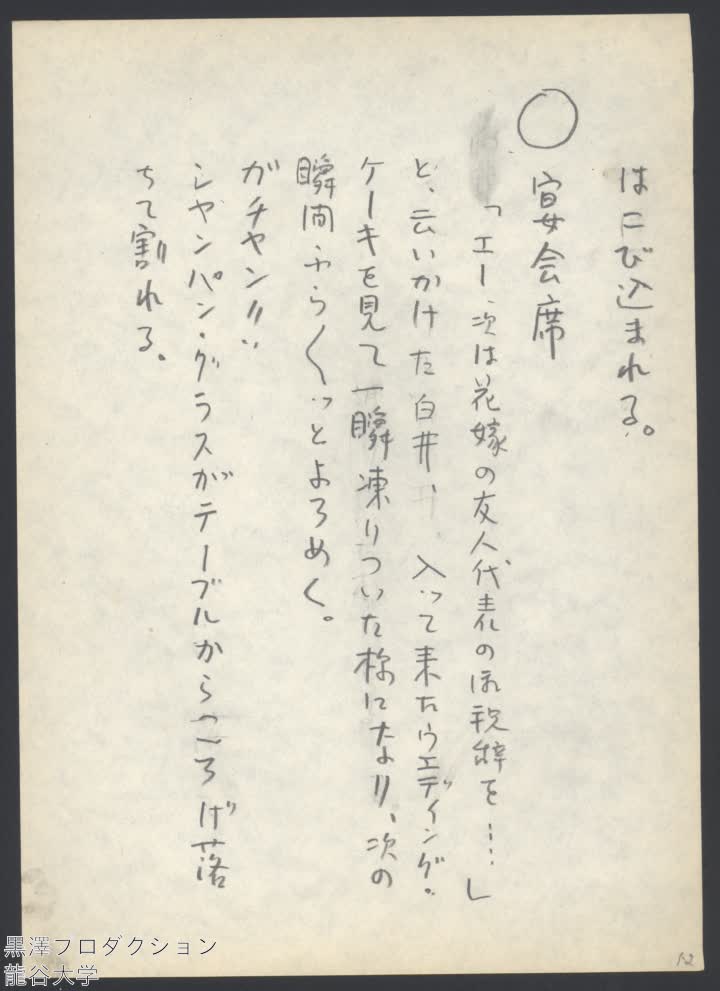 はこび込まれる。
○
宴会席
「エー、次は花嫁の友人代表の御祝辞を……」
と、云いかけた白井、入って来たウエディング・
ケーキを見て一瞬凍りついた様になり、次の
瞬間ふらふらっとよろめく。
ガチャン!!
シャンパン・グラスがテーブルからころげ落
ちて割れる。
12
黒澤プロダクション
龍谷大学